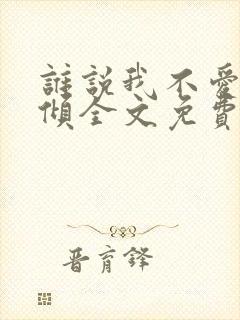 誰說我不愛
傾全文免費
晋育鋒